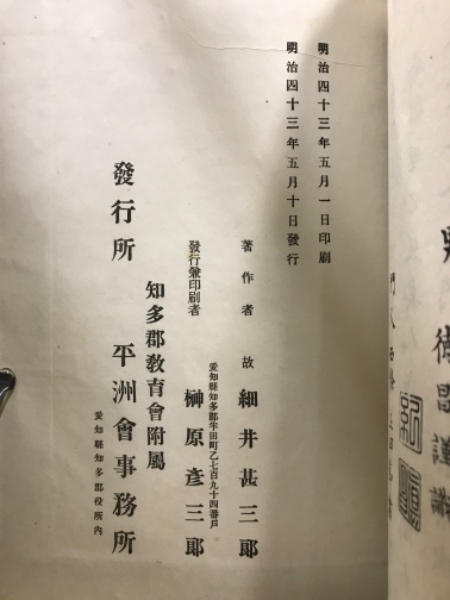 明治四十三年五月一日印刷
明治四十三年五月十日發行
著作者 故 細井甚三郎
愛知縣知多郡半田町乙七百九十四番戸
發行兼印刷者 榊原彦三郎
知多郡教育會附屬
發行所 平洲會事務所
愛知縣知多郡役所內